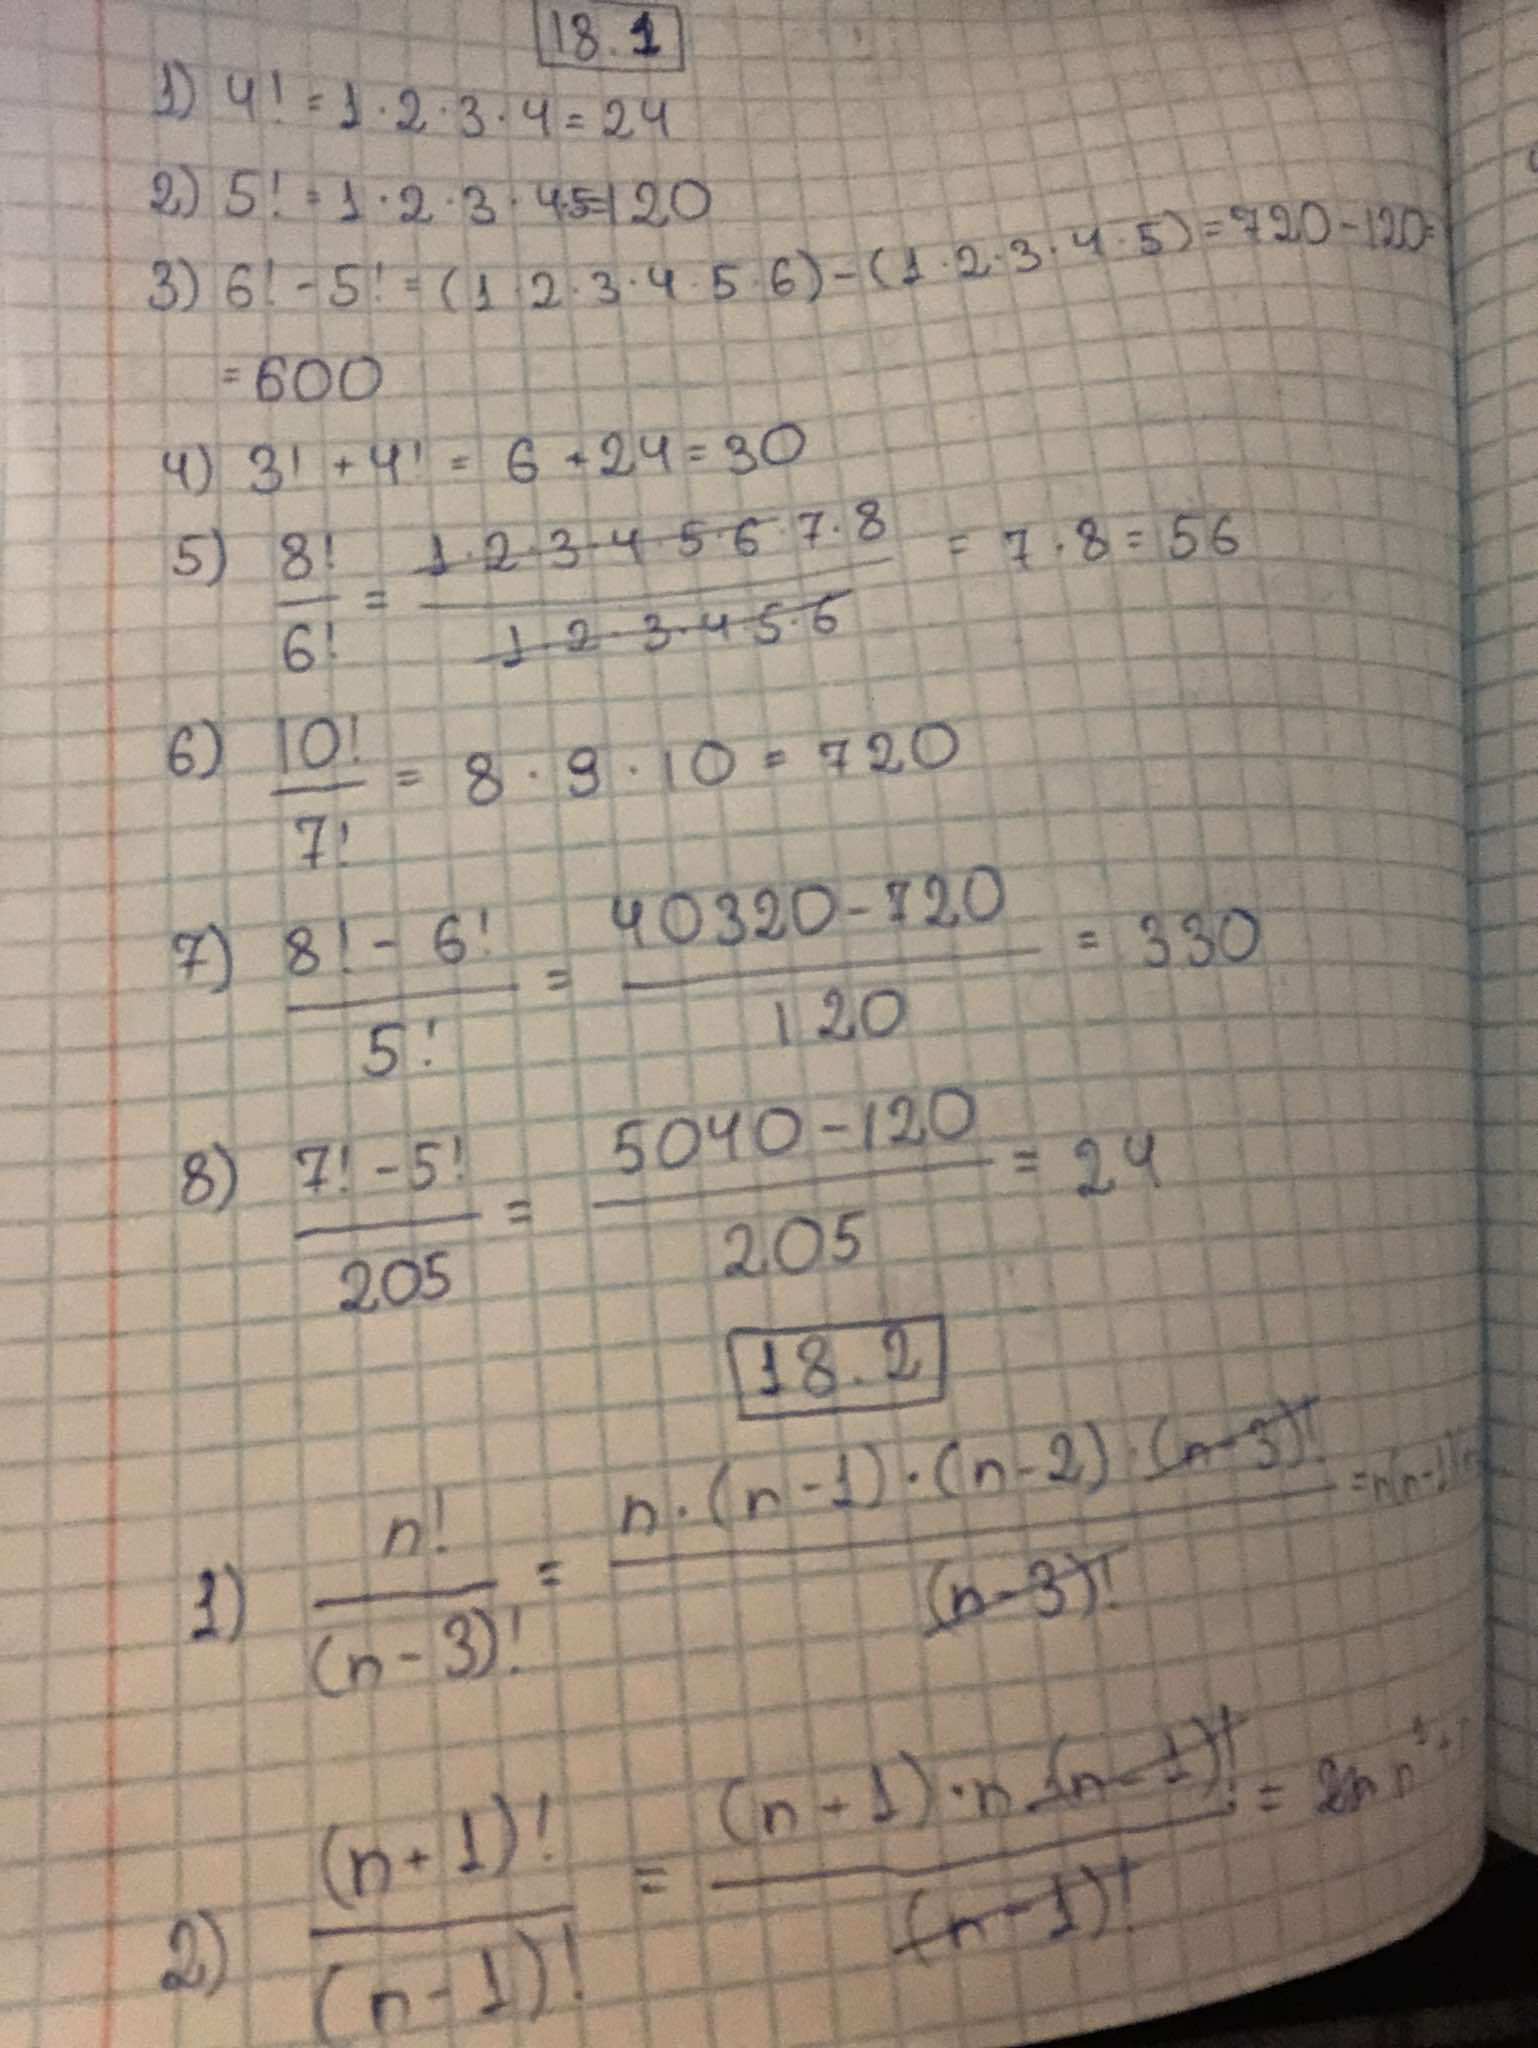 18.1
1) 4! = 1·2·3·4 = 24
2) 5! = 1·2·3·4·5=120
3) 6! - 5! = (1·2·3·4·5·6) - (1·2·3·4·5) = 720 - 120 =
= 600
4) 3! + 4! = 6 + 24 = 30
5) 8!/6! = 1·2·3·4·5·6·7·8/1·2·3·4·5·6 = 7·8 = 56
6) 10!/7! = 8·9·10 = 720
7) 8! - 6!/5! = 40320 - 720/120 = 330
8) 7! - 5!/205 = 5040 - 120/205 = 24
18.2
1) n!/(n-3)! = n·(n-1)·(n-2)·(n-3)!/(n-3)! = n(n-1)
2) (n+1)!/(n-1)! = (n+1)·n·(n-1)!/(n-1)! =